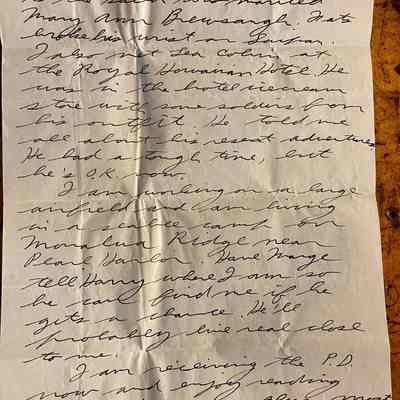 Mary Ann Brewsaugh. Nate
broke his wrist on Saipan.
I also met Lea Colvin at
the Royal Hawaiian Hotel. He
was in the hotel icecream
store with some soldiers from
his outfit. He told me
all about his resent adventures.
He had a tough time, but
he's O.K. now.
I am working on a large
airfield and am living
in a seabee camp on
Moanalua Ridge near
Pearl Harbor. Have Marge
tell Harry where I am so
he can find me if he
gets a chance. He'll
probably live real close
to me.
I am receiving the P.D.
now and enjoy reading